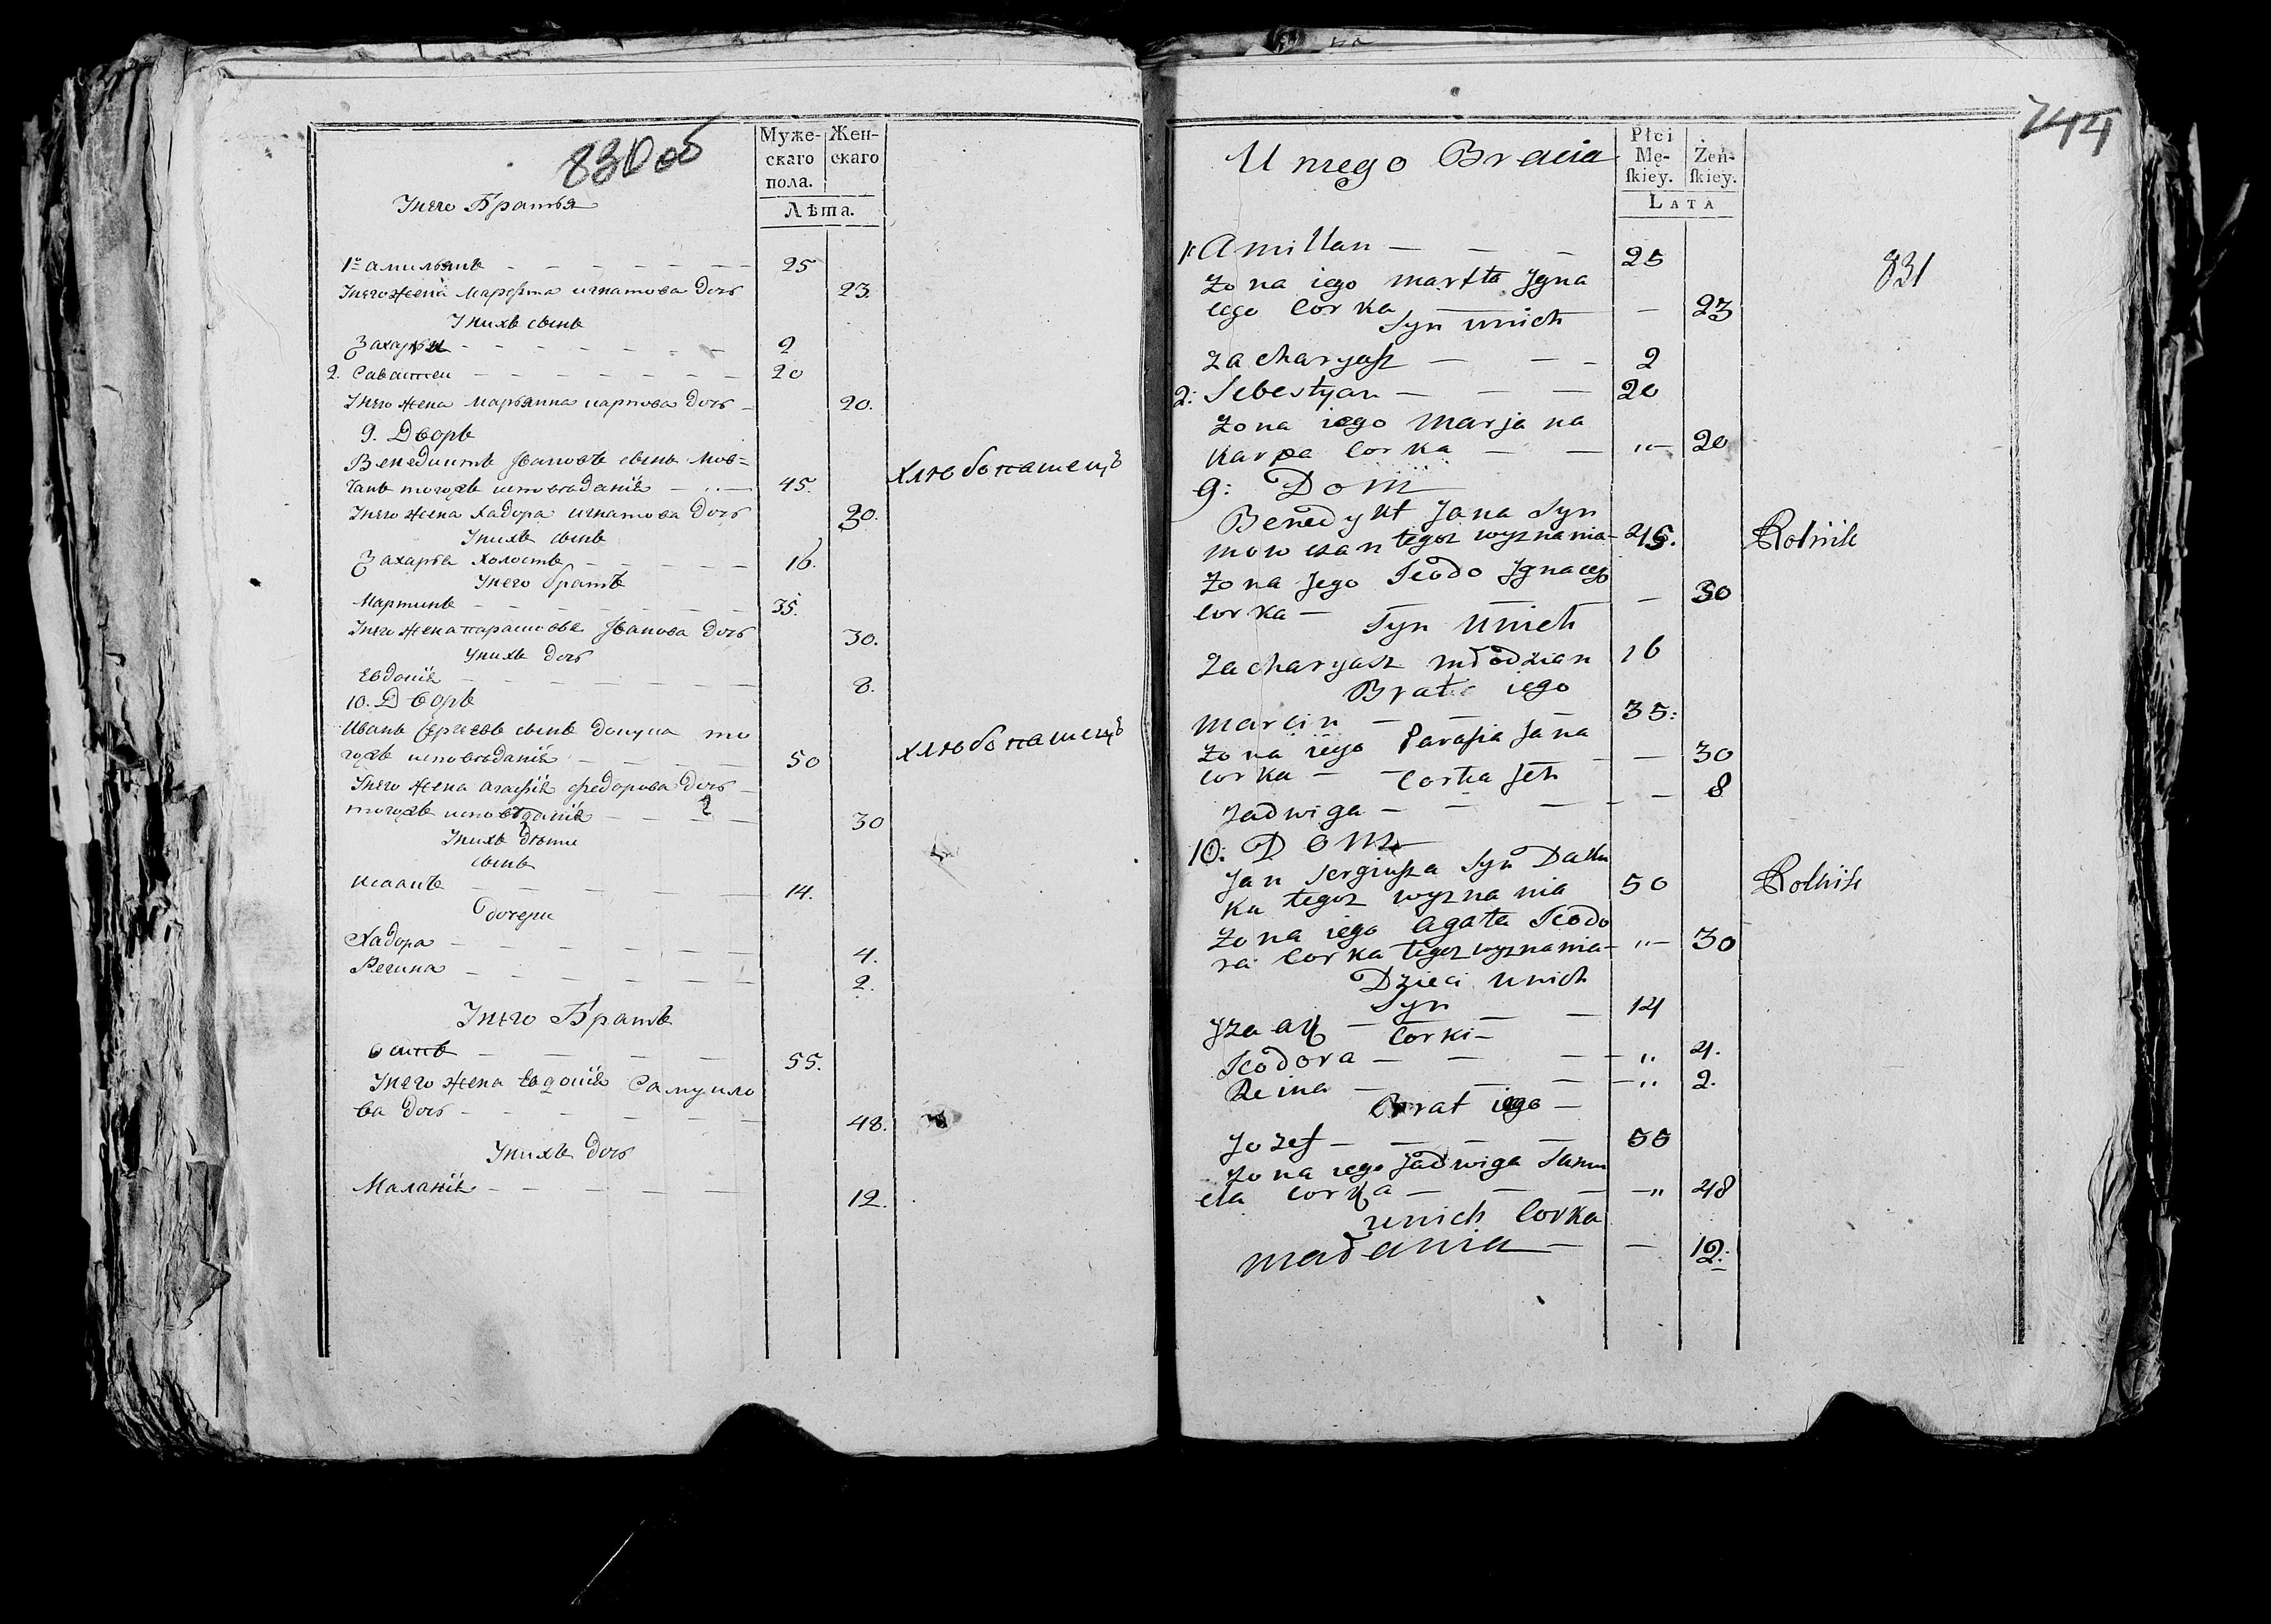 830 об
Муже- Жен-
скаго скаго
пола.
Лѣта.
Унего Братья
1е амильянъ 25
Унего жена Марѳта игнатова дочь 23.
Унихъ сынъ
Захарья 2
2. Саватеи 20
Унего жена марьянна карпова дочь 20.
9. Дворъ
Венедиктъ Ивановъ сынъ мов= хлѣбопашецъ
чанъ тогожъ исповѣданія 45.
Унего жена Хадора игнатова дочь 30.
Унихъ сынъ
Захарья холостъ 16.
Унего братъ
Мартинъ 35.
Унего жена парасковья Иванова дочь 30.
Унихъ дочь
Евдокія 8.
10. Дворъ
Иванъ Сергеевъ сынъ докука то хлѣбопашецъ
гожъ исповѣданія 50
Унего жена агафія федорова дочь
тогожъ исповѣданія 30
Унихъ дѣти
сынъ
Исаакъ 14.
дочери
Хадора 4.
Регина 2.
Унего Братъ
осипъ 55.
Унего жена Евдокія Самуило
ва дочь 48.
Унихъ дочь
Маланія 12.
744
Płci
Mę- Żeń-
ſkiey. ſkiey.
LATA
U niego Bracia
831
1: Amillan 25
Zona iego marfta Jgna
cego Corka 23
Syn unich
Zacharyasz 2
2: Sebestyan 20
Zona iego Marjana
Karpa Corka 20
9: Dom
Benedykt Jana Syn
mowczan tegoz wyznania 45. Rolnik
Zona Jego Teodo Jgnacego
Corka 30
Syn Unich
Zacharyasz młodzian 16
Brat iego
Marcin 35:
Zona iego Parasia Jana
Corka 30
Corka Jch
Jadwiga 8
10: Dom
Jan Sergiusza Syn Daku
ka tegoz wyznania 50 Rolnik
Zona iego Agata Teodo
ra Corka tegoz wyznania 30
Dzieci unich
Syn
Jzaak 14
Corki
Teodora 4.
Reina 2.
Brat iego
Jozef 55
Zona iego Jadwiga Samu
ela Corka 48
unich Corka
Małania 12: